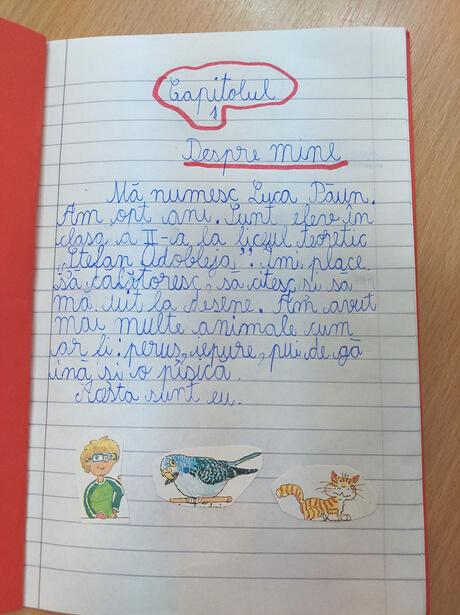 Capitolul
1
Despre mine
Mă numesc Luca Păun.
Am opt ani. Sunt elev în
clasa a II-a la liceul teoretic
„Ștefan Odobleja". Îmi place
să călătoresc, să citesc și să
mă uit la desene. Am avut
mai multe animale cum
ar fi: peruș, iepure, pui de gă
ină și o pisică.
Acesta sunt eu.